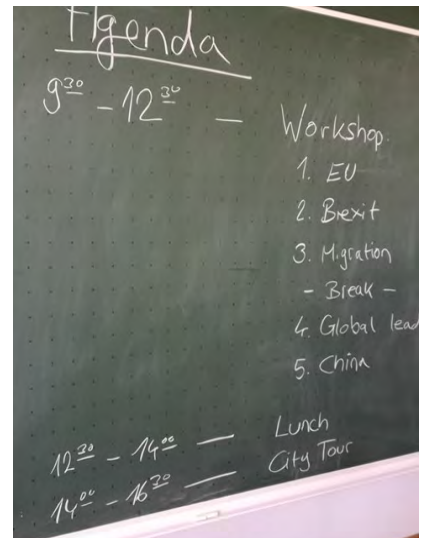 Agenda
9³⁰ – 12³⁰ — Workshop.
1. EU
2. Brexit
3. Migration
- Break -
4. Global lead
5. China
12³⁰ – 14⁰⁰ — Lunch
14⁰⁰ – 16³⁰ — City Tour